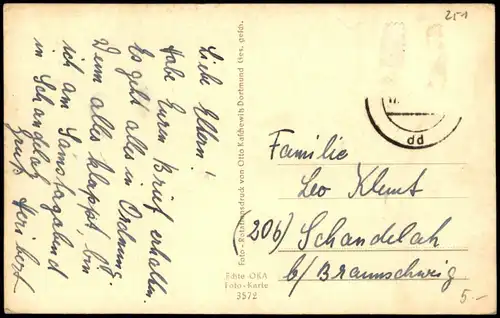 Liebe Eltern!
Habe Euren Brief erhalten.
Es geht alles in Ordnung.
Wenn alles klappt, bin
ich am Samstagabend
in Schandelah
Gruß Heribert
Foto-Rotationsdruck von Otto Katschewitz Dortmund Ges. gesch.
Echte OKA
Foto-Karte
3572
251
dd
Familie
Leo Klemt
(20b) Schandelah
b/ Braunschweig
5.-